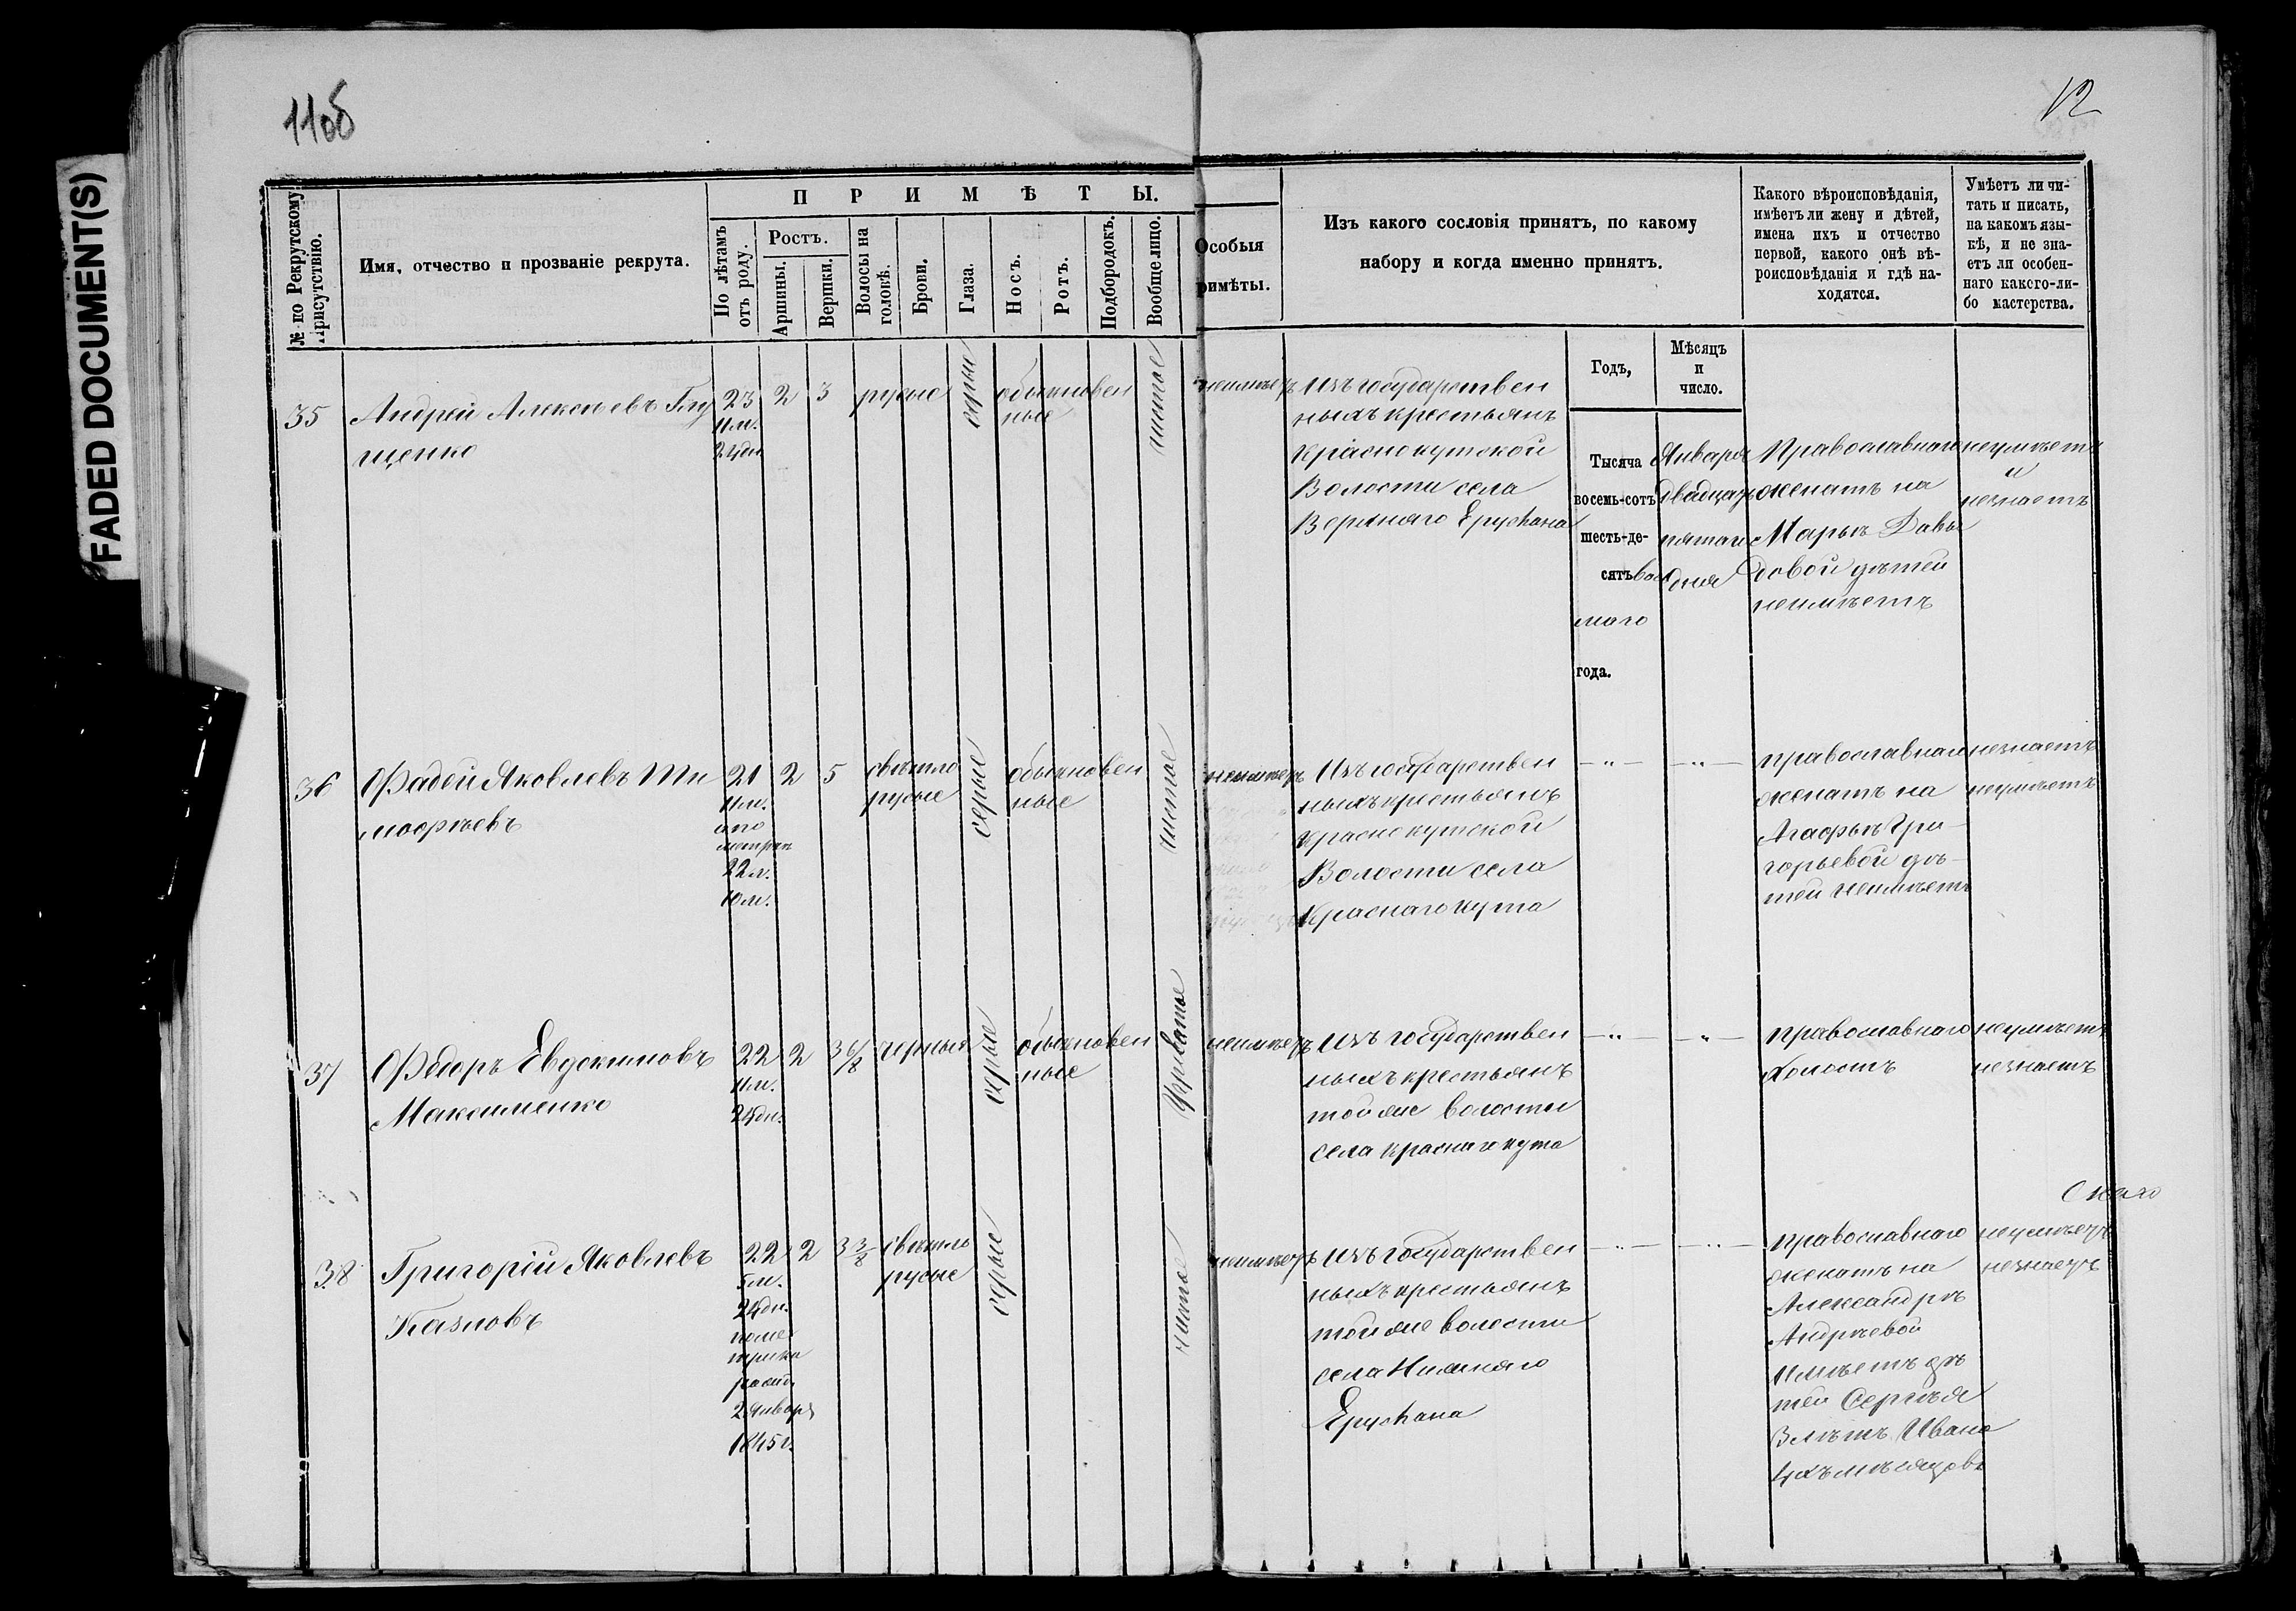 FADED DOCUMENT(S)
11об
12
№ по Рекрутскому Присутствію.
Имя, отчество и прозваніе рекрута.
ПРИМѢТЫ.
По лѣтамъ отъ роду.
Ростъ.
Аршины.
Вершки.
Волосы на головѣ.
Брови.
Глаза.
Носъ.
Ротъ.
Подбородокъ.
Вообще лицо.
Особыя
римѣты.
Изъ какого сословія принятъ, по какому
набору и когда именно принятъ.
Годъ,
Мѣсяцъ
и
число.
Какого вѣроисповѣданія,
имѣетъ ли жену и дѣтей,
имена ихъ и отчество
первой, какого онѣ вѣ-
роисповѣданія и гдѣ на-
ходятся.
Умѣетъ ли чи-
тать и писать,
на какомъ язы-
кѣ, и не зна-
етъ ли особен-
наго какого-ли-
бо мастерства.
35
Андрей Алексѣевъ Глу
щенко
23
11 м.
24 дн
2
3
русые
серые
обыкновен
ные
чистое
неимѣетъ
Изъ государствен
ныхъ крестьянъ
Краснокутской
Волости села
Верхняго Еруслана
Тысяча
восемь-сотъ
шесть-де-
сятъ вось
маго
года.
Января
двадцать
пятаго
дня
Православнаго
женатъ на
Марьѣ Давы
довой дѣтей
неимѣетъ
неумѣетъ
и
незнаетъ
36
Фадей Яковлевъ Ти
мофѣевъ
21
11 м.
а по
метрик
22 л.
10 м.
2
5
свѣтло
русые
серые
обыкновен
ные
чистое
неимѣетъ
Изъ государствен
ныхъ крестьянъ
Краснокутской
Волости села
Краснаго Кута
— " —
— " —
православнаго
женатъ на
Агафьѣ Гри-
горьевой дѣ-
тей неимѣетъ
незнаетъ
неумѣетъ
37
Ѳедоръ Евдокимовъ
Максименко
22
11 м.
24 дн.
2
3 6/8
черныя
серые
обыкновен
ные
неимѣетъ
Изъ государствен
ныхъ крестьянъ
той же волости
села Краснаго Кута
— " —
— " —
православнаго
холостъ
неумѣетъ
незнаетъ
38
Григорій Яковлевъ
22
5 м.
24 дн.
по ме
трика
2 Января
1845 г.
2
3 3/8
свѣтло
русые
серые
чистое
неимѣетъ
Изъ государствен
ныхъ крестьянъ
той же волости
села Нижняго
Еруслана
— " —
— " —
православнаго
женатъ на
Александрѣ
Андрѣевой
Имѣетъ дѣ
тей Сергѣя
3 лѣтъ Ивана
4хъ мѣсяцовъ
неумѣетъ
незнаетъ